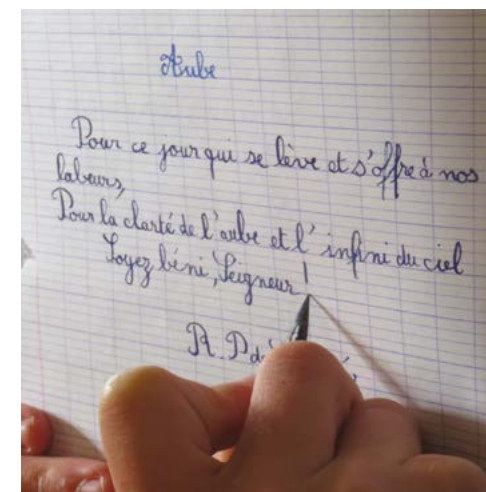 Aube
Pour ce jour qui se lève et s'offre à nos
labeurs,
Pour la clarté de l'aube et l'infini du ciel
Soyez béni, Seigneur !
R. P